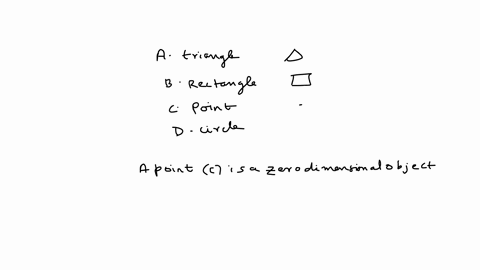 A. triangle
B. Rectangle
C. Point
D. circle
A point (c) is a zero dimensional object